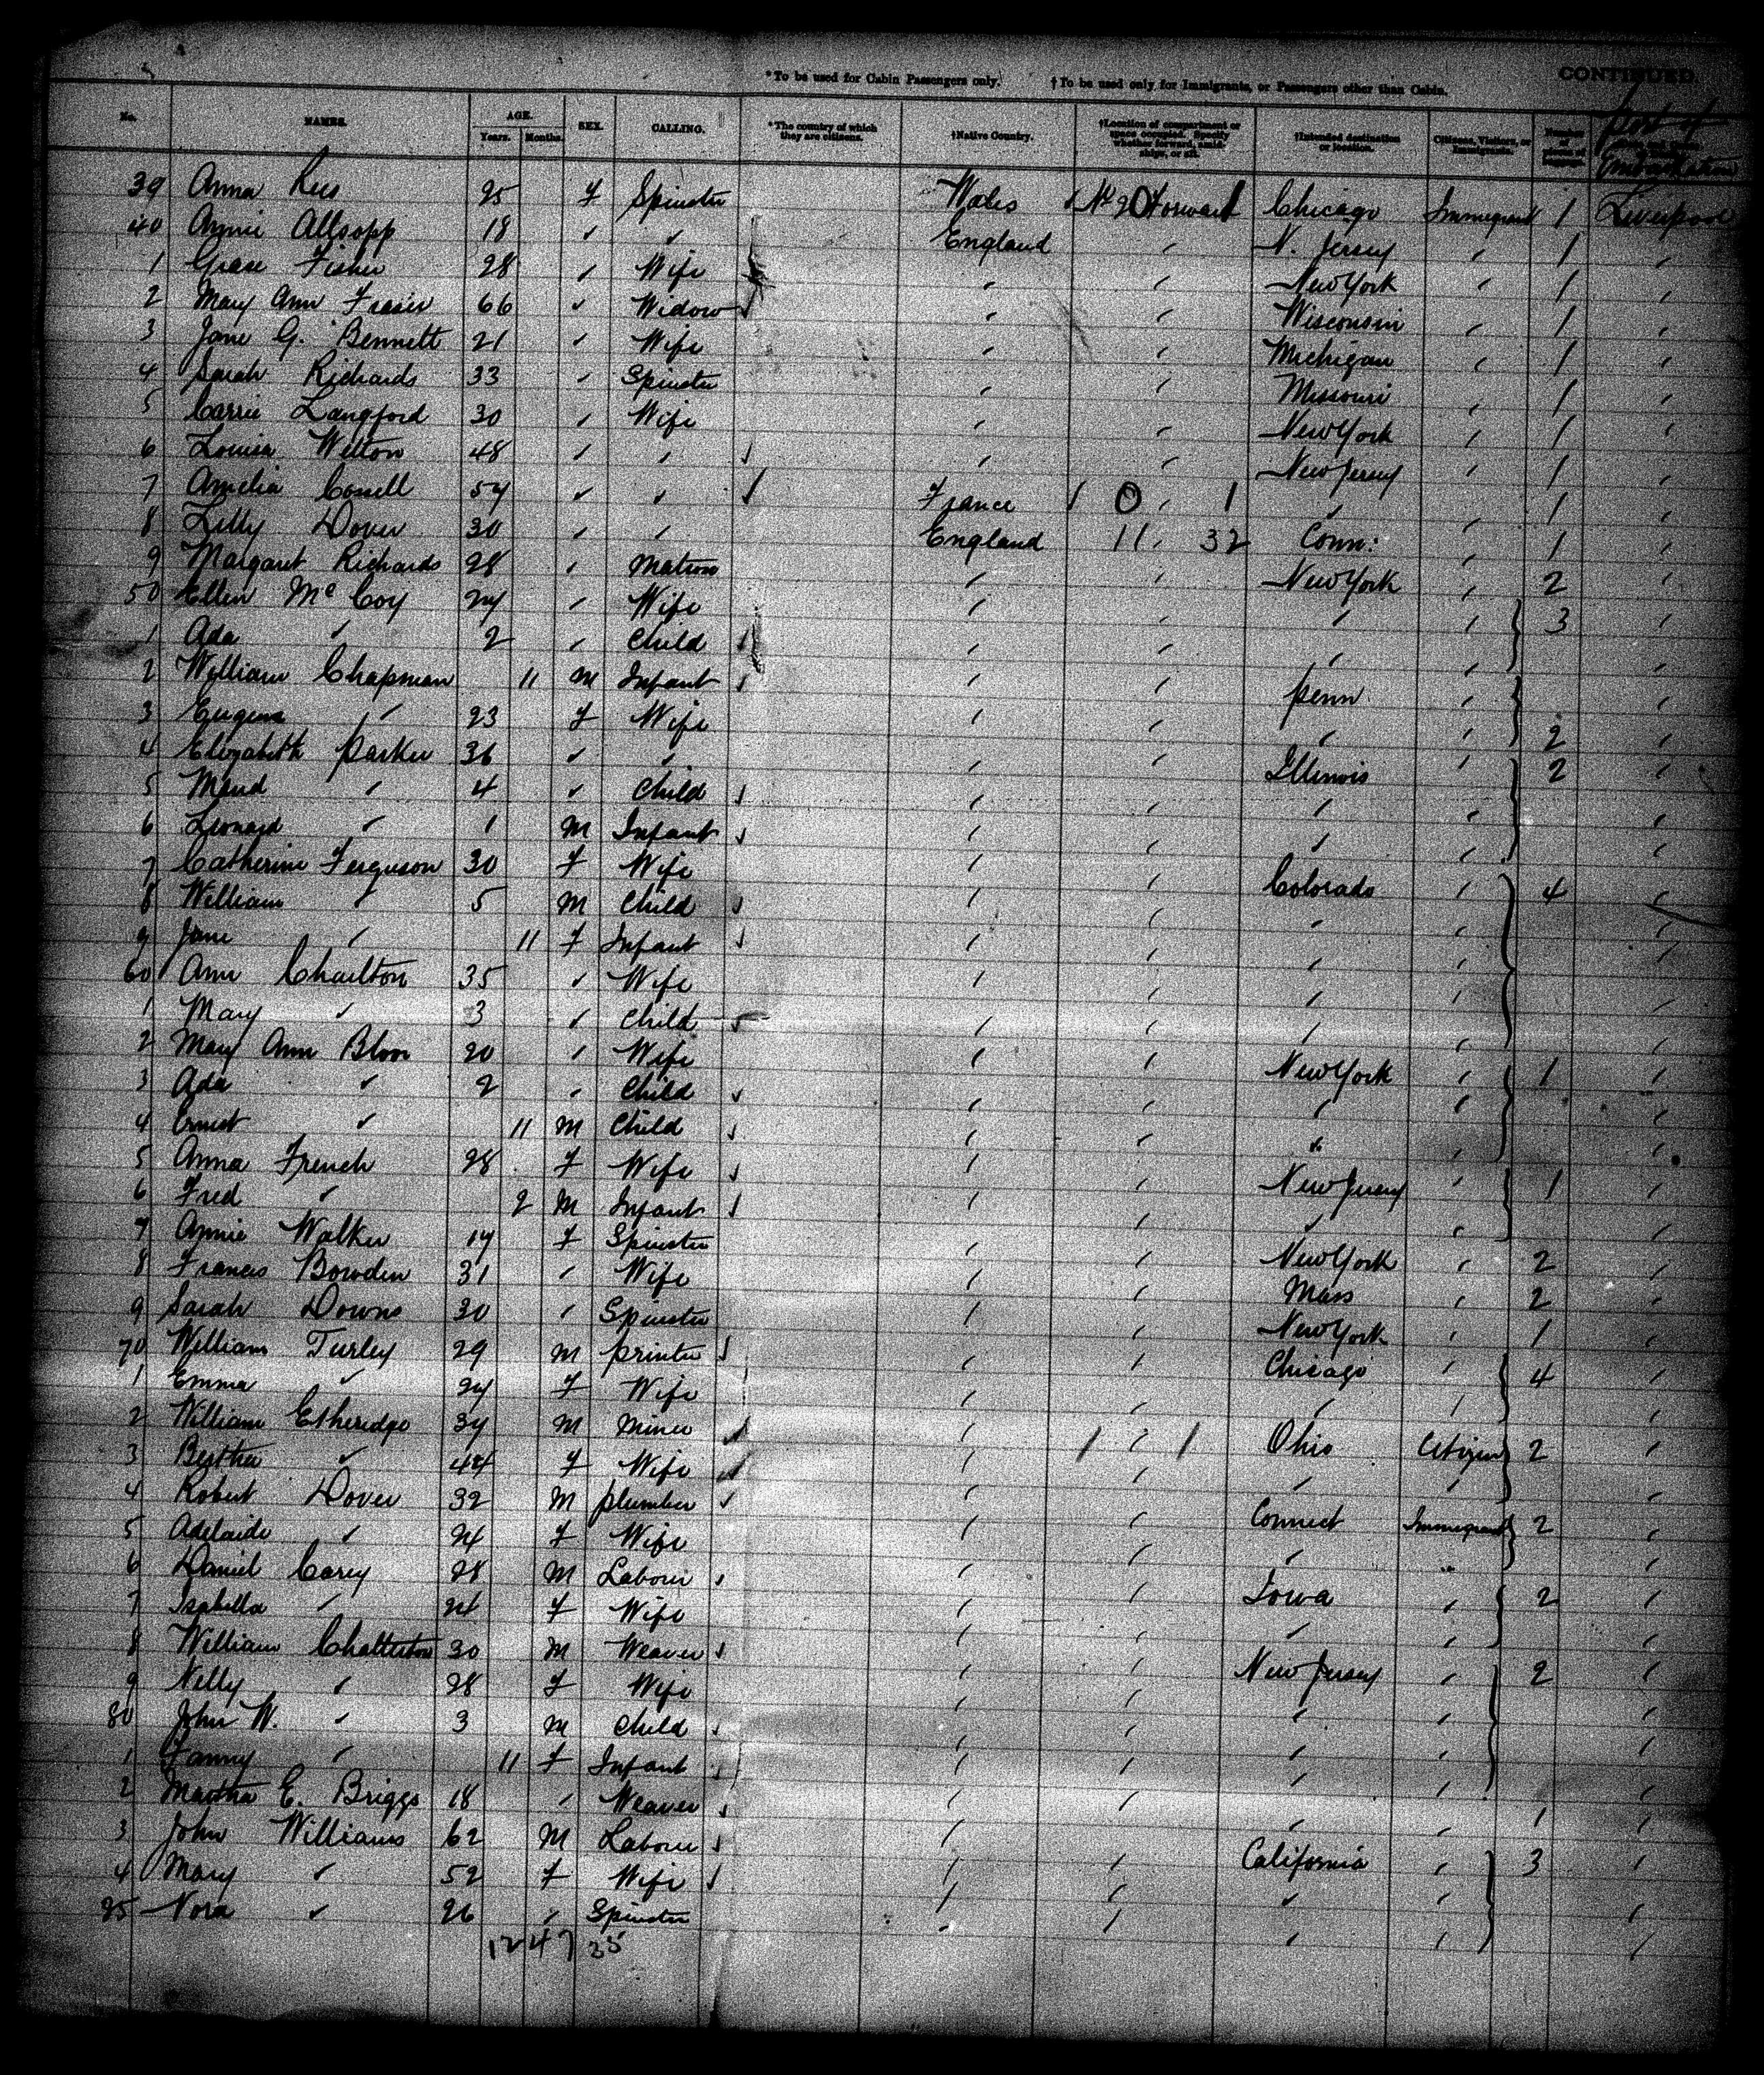 CONTINUED.
*To be used for Cabin Passengers only. †To be used only for Immigrants, or Passengers other than Cabin.
No. NAMES. AGE. Years. Months. SEX. CALLING. *The country of which they are citizens. †Native Country. †Location of compartment or space occupied. Specify whether forward, amidships, or aft. †Intended destination or location. Citizens, Visitors, or Immigrants. Number of Port of Embarkation
39 Anna Rees 25 F Spinster Wales Forward Chicago Immigrant 1 Liverpool
40 Annie Allsopp 18 " " England " N. Jersey " 1 "
1 Grace Fisher 28 " Wife " " New York " 1 "
2 Mary Ann Frasir 66 " Widow " " Wisconsin " 1 "
3 Jane G. Bennett 21 " Wife " " Michigan " 1 "
4 Sarah Richards 33 " Spinster " " Missouri " 1 "
5 Carrie Langford 30 " Wife " " New York " 1 "
6 Louisa Welton 48 " " " " New Jersey " 1 "
7 Amelia Cossell 54 " " France 0 " 1 " " 1 "
8 Lilly Dover 30 " " England 11 " 32 Conn: " 1 "
9 Margaret Richards 28 " Matron " " New York " 2 "
50 Ellen McCoy 24 " Wife " " " " 3 "
1 Ada " 2 " Child " " " " "
2 William Chapman 11 M Infant " " Penn " "
3 Eugene " 23 F Wife " " " " 2 "
4 Elizabeth Parker 36 " " " " Illinois " 2 "
5 Maud " 4 " Child " " " " "
6 Leonard " 1 M Infant " " " " "
7 Catherine Ferguson 30 F Wife " " Colorado " 4 "
8 William " 5 M Child " " " " "
9 Jane " 11 F Infant " " " " "
60 Ann Charlton 35 " Wife " " " " "
1 Mary " 3 " Child " " " " "
2 Mary Ann Bloor 20 " Wife " " New York " 1 "
3 Ada " 2 " Child " " " " "
4 Ernest " 11 M Child " " " " "
5 Anna French 28 F Wife " " New Jersey " 1 "
6 Fred " 2 M Infant " " " " "
7 Annie Walker 14 F Spinster " " New York " 2 "
8 Frances Bowden 31 " Wife " " Mass " 2 "
9 Sarah Downs 30 " Spinster " " New York " 1 "
70 William Turley 29 M Printer " " Chicago " 4 "
1 Emma " 24 F Wife " " " " "
2 William Etheridge 34 M Miner " " Ohio Citizen 2 "
3 Bertha " 44 F Wife " " " " "
4 Robert Dover 32 M Plumber " " Connect Immigrant 2 "
5 Adelaide " 24 F Wife " " " " "
6 Daniel Carey 28 M Labourer " " Iowa " 2 "
7 Isabella " 24 F Wife " " " " "
8 William Chatterton 30 M Weaver " " New Jersey " 2 "
9 Nelly " 28 F Wife " " " " "
80 John W. " 3 M Child " " " " "
1 Fanny " 11 F Infant " " " " "
2 Martha E. Briggs 18 " Weaver " " " " 1 "
3 John Williams 62 M Labourer " " California " 3 "
4 Mary " 52 F Wife " " " " "
85 Nora " 26 " Spinster " " " " "
12 47 35